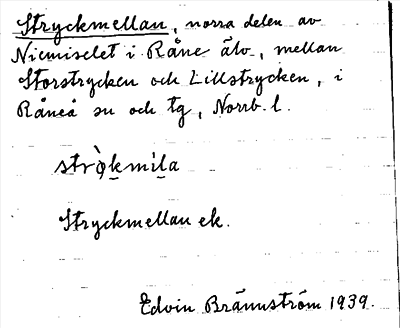 Stryckmellan, norra delen av
Niemiselet i Råne älv, mellan
Storstrycken och Lillstrycken, i
Råneå sn och tg, Norrb. l.
Stryckmellan ek.
Edvin Brännström 1939.